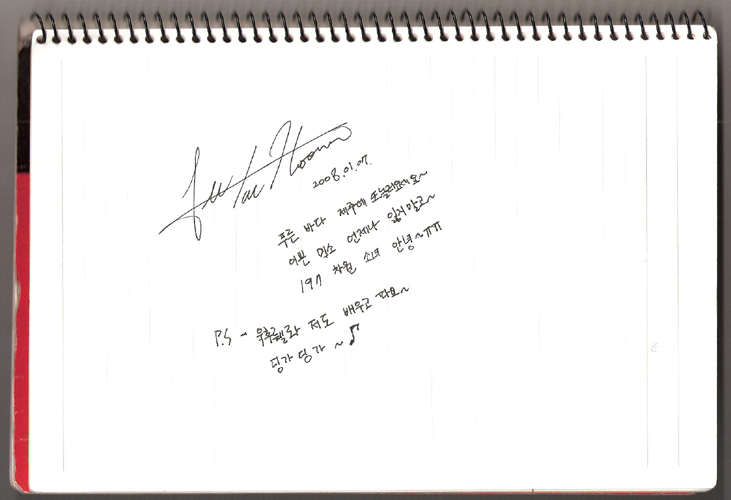 Lee Tae Hoon
2008.01.07.
푸른 바다 제주에 또놀러오세요~
이쁜 미소 언제나 잃지말고~
197 차원 소녀 안녕~ㅠㅠ
P.S - 우쿠렐라 저도 배우고 파요~
딩가딩가 ~♪